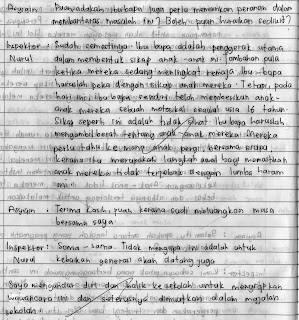 Aryan : Puan, adakah ibubapa juga perlu memainkan peranan dalam
membanteras masalah ini? Boleh puan huraikan sedikit?
Inspektor : Sudah semestinya. Ibu bapa adalah penggerak utama
Nurul dalam membentuk sikap anak-anak ini. Tambahan pula
ketika mereka sedang meningkat remaja, ibu bapa
haruslah peka dengan sikap anak mereka. Tetapi, pada
hari ini, ibu bapa sendiri telah membiarkan anak-
anak mereka sebaik usia 15 tahun.
Sikap seperti ini adalah tidak ibu bapa haruslah
mengambil berat tentang anak-anak mereka. Mereka
perlu tahu ke mana anak pergi, bersama siapa,
kerana itu merupakan langkah awal bagi memastikan
anak mereka tidak terjebak dengan lumba haram
ini.
Aryan : Terima kasih, puan kerana sudi meluangkan masa
bersama saya.
Inspektor : Sama-sama. Tidak mengapa, ini adalah untuk
Nurul kebaikan generasi akan datang juga.
Saya mengundur diri dan balik ke sekolah untuk menyiapkan
wawancara ini dan seterusnya dimuatkan dalam majalah
sekolah.